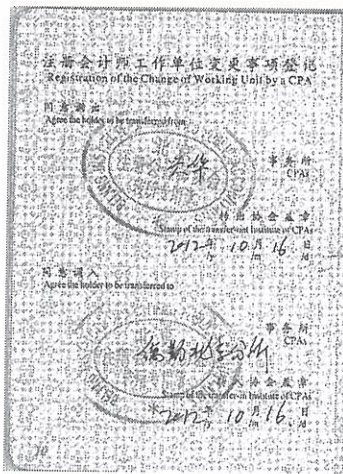 注册会计师工作单位变更事项登记
Registration of the Change of Working Unit by a CPA
同意调出
Agree the holder to be transferred from
事务所
CPAs
转出协会盖章
Stamp of the transfer-out Institute of CPAs
2012年 10月 16日
/y /m /d
同意调入
Agree the holder to be transferred to
事务所
CPAs
转入协会盖章
Stamp of the transfer-in Institute of CPAs
2012年 10月 16日
/y /m /d
10